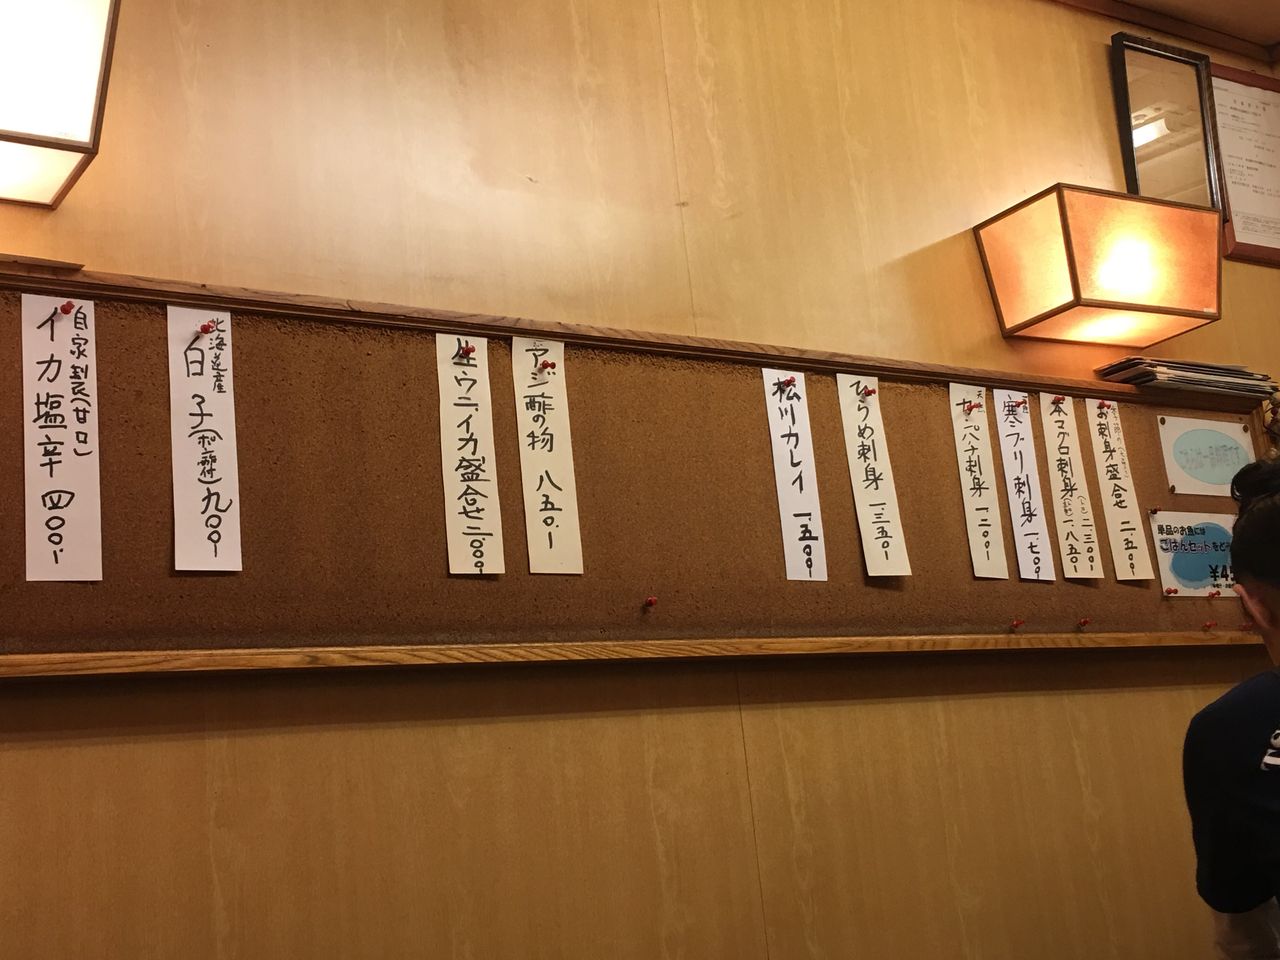 お刺身盛合せ 二、五〇〇
本マグロ刺身(トロ)二、三〇〇
一、八五〇
天然
寒ブリ刺身 一、七〇〇
天然
カンパチ刺身 一、二〇〇
ひらめ刺身 一、三五〇
松川カレイ 一、五〇〇
アジ酢の物 八五〇
生ウニ、イカ盛合せ 二、〇〇〇
北海道産
白子(ポン酢付)九〇〇
自家製(甘口)
イカ塩辛 四〇〇
単品のお魚には
ごはんセットをど